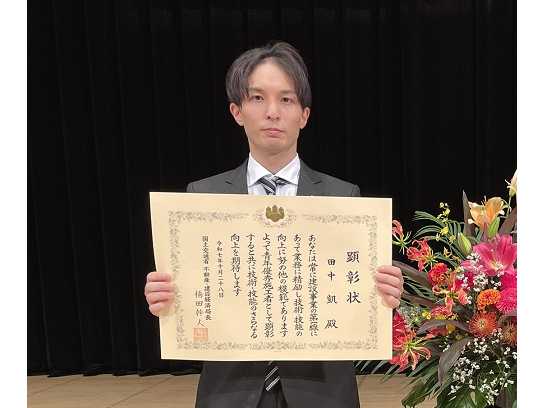 顕彰状
田中 凱 殿
あなたは常に建設事業の第一線に
あって業務に精励し技術・技能の
向上に努め他の模範であります
よって青年優秀施工者として顕彰
すると共に技術・技能のさらなる
向上を期待します
令和七年十月二十八日
国土交通省 不動産・建設経済局長
楠田幹人